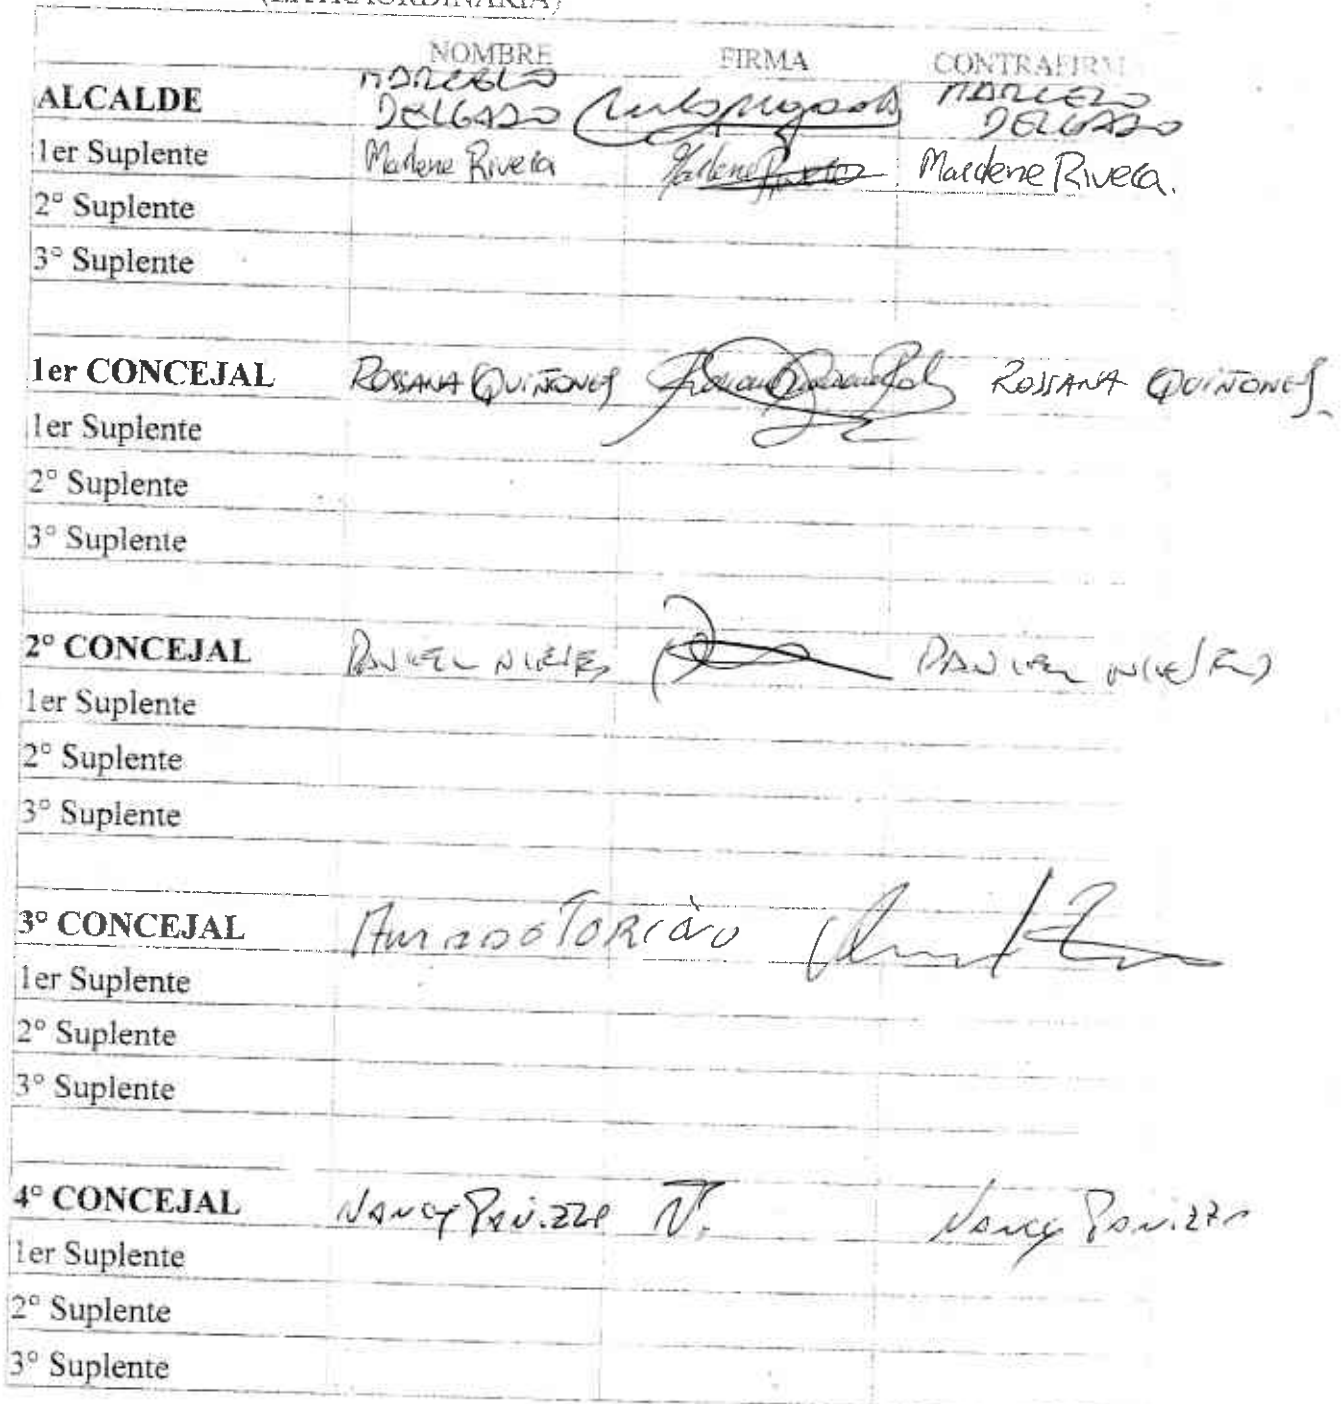 (EXTRAORDINARIA)
NOMBRE FIRMA CONTRAFIRMA
ALCALDE MARCELO DELGADO MARCELO DELGADO
1er Suplente Marlene Rivera Marlene Rivera Marlene Rivera.
2° Suplente
3° Suplente
1er CONCEJAL ROSSANA QUIÑONES ROSSANA QUIÑONES
1er Suplente
2° Suplente
3° Suplente
2° CONCEJAL DANIEL NIEVES DANIEL NIEVES
1er Suplente
2° Suplente
3° Suplente
3° CONCEJAL
1er Suplente
2° Suplente
3° Suplente
4° CONCEJAL NANCY Panizza N. Nancy Panizza
1er Suplente
2° Suplente
3° Suplente